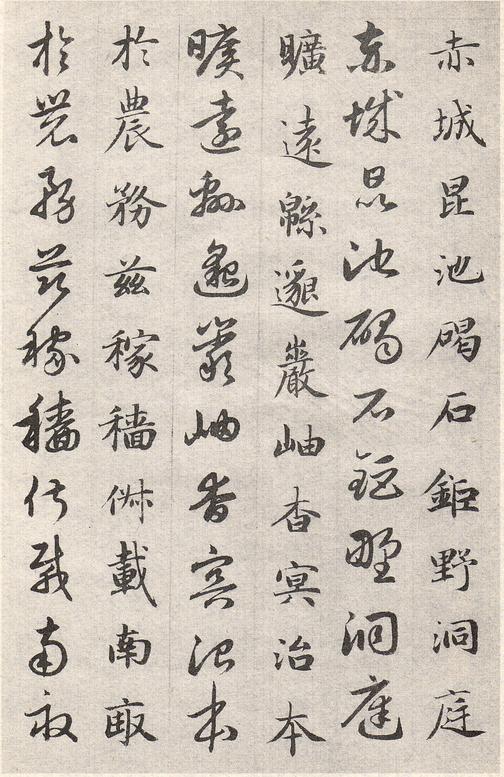 赤城昆池碣石鉅野洞庭
赤城昆池碣石鉅野洞庭
曠遠緜邈巖岫杳冥治本
曠遠緜邈巖岫杳冥治本
於農務茲稼穡俶載南畝
於農務茲稼穡俶載南畝